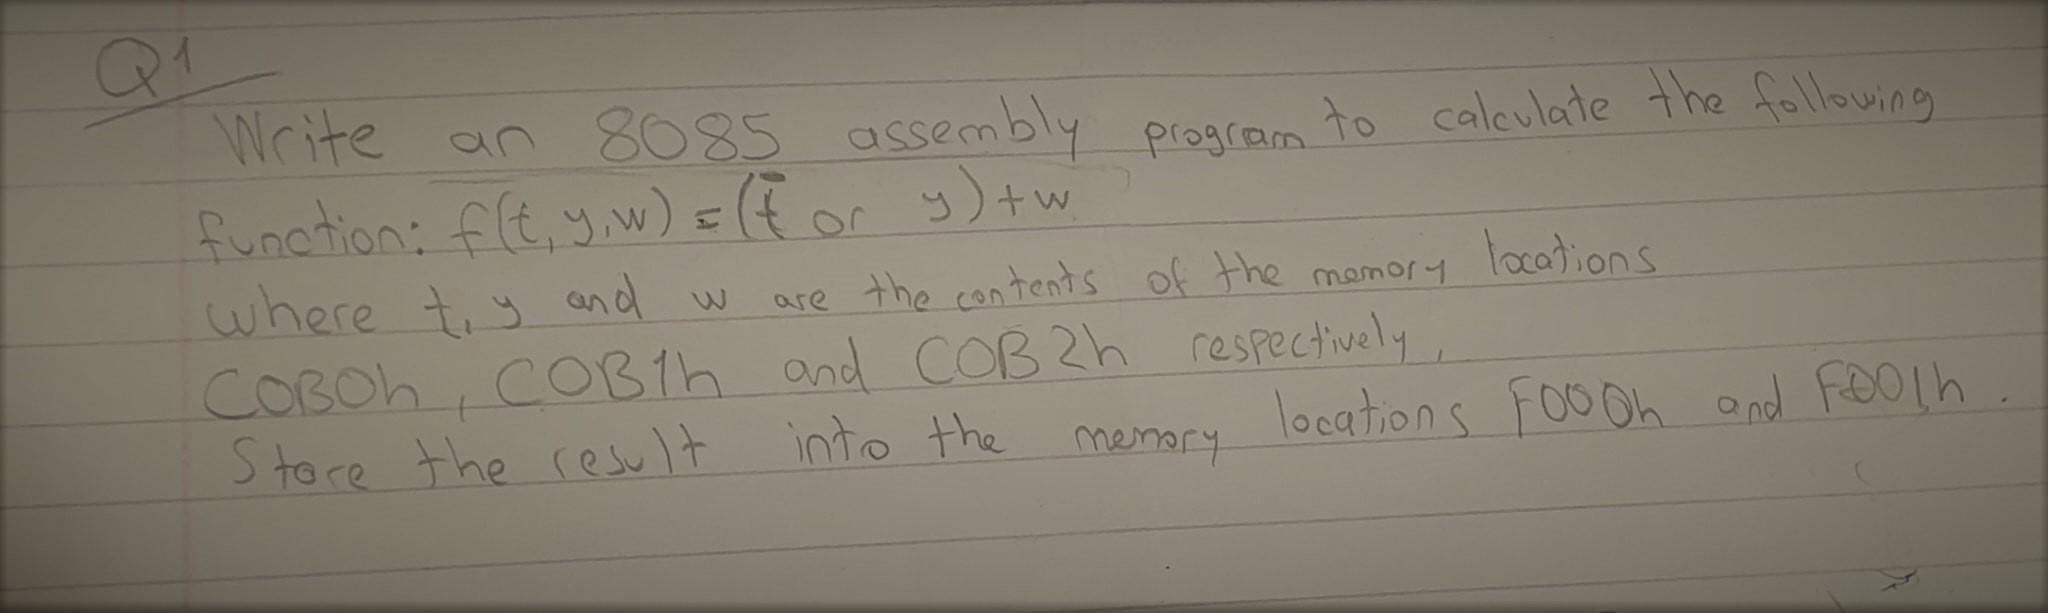 Q1
Write an 8085 assembly program to calculate the following
function: f(t, y, w) = (t̄ or y) + w
where t, y and w are the contents of the memory locations
C0B0h, C0B1h and C0B2h respectively,
Store the result into the memory locations F000h and F001h.